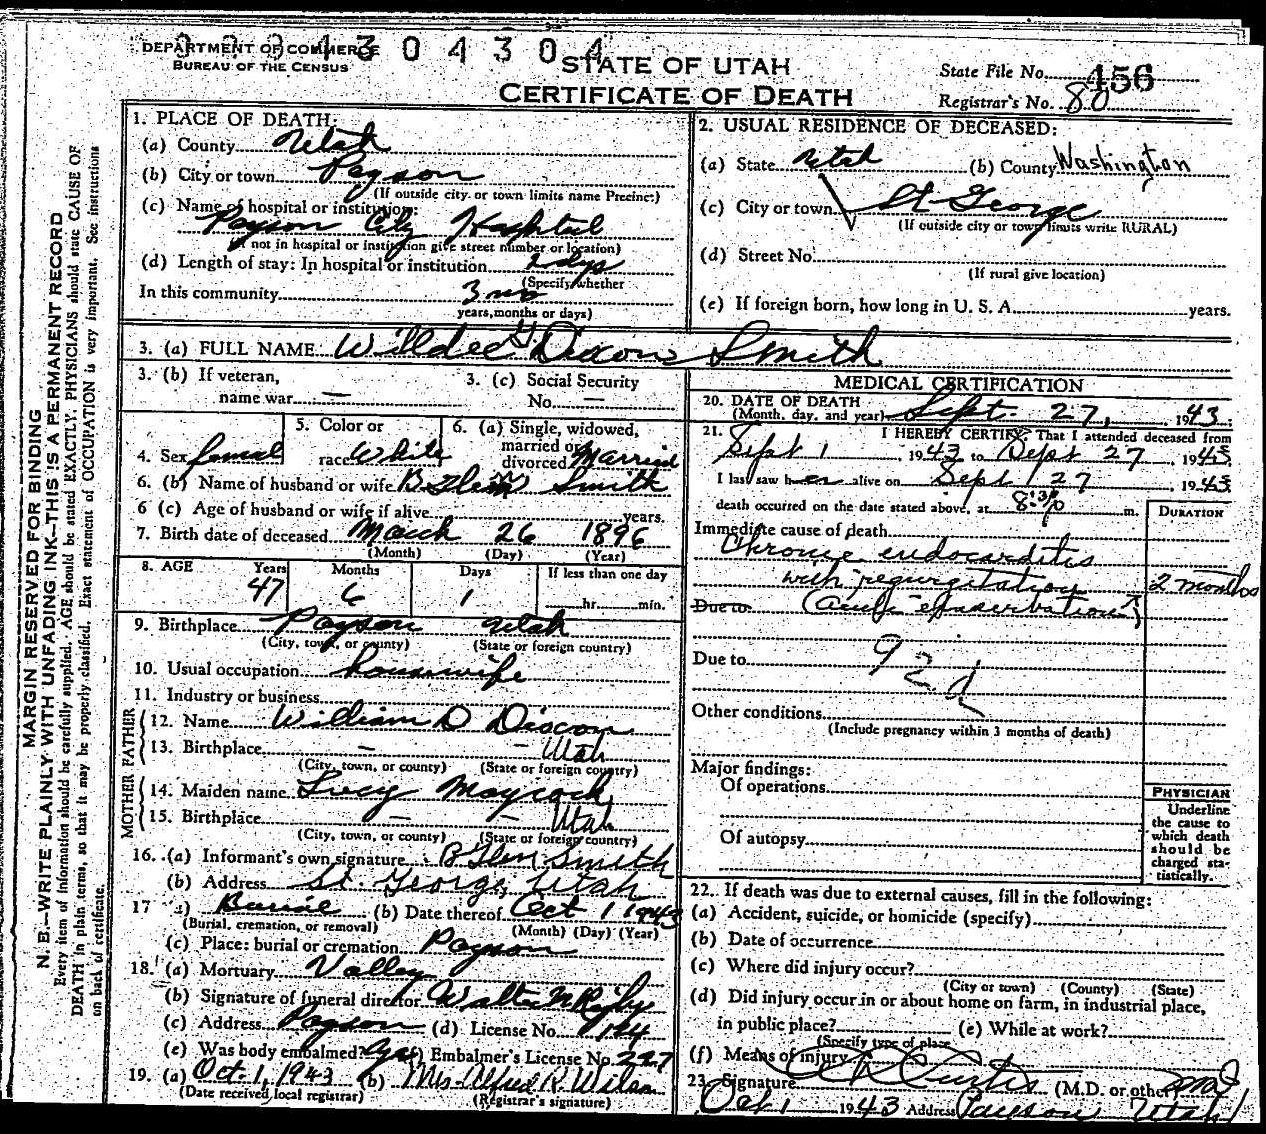 DEPARTMENT OF COMMERCE
BUREAU OF THE CENSUS
4304304
STATE OF UTAH
CERTIFICATE OF DEATH
State File No. 456
Registrar's No. 80
MARGIN RESERVED FOR BINDING
N. B.—WRITE PLAINLY WITH UNFADING INK—THIS IS A PERMANENT RECORD
Every item of information should be carefully supplied. AGE should be stated EXACTLY. PHYSICIANS should state CAUSE OF
DEATH in plain terms, so that it may be properly classified. Exact statement of OCCUPATION is very important. See instructions
on back of certificate.
1. PLACE OF DEATH:
(a) County Utah
(b) City or town Payson
(If outside city or town limits name Precinct)
(c) Name of hospital or institution:
Payson City Hospital
(If not in hospital or institution give street number or location)
(d) Length of stay: In hospital or institution 2 dys
(Specify whether
In this community 3 mo
years, months or days)
2. USUAL RESIDENCE OF DECEASED:
(a) State Utah (b) County Washington
(c) City or town St George
(If outside city or town limits write RURAL)
(d) Street No.
(If rural give location)
(e) If foreign born, how long in U. S. A. years.
3. (a) FULL NAME Willdee Dixon Smith
3. (b) If veteran,
name war —
3. (c) Social Security
No. —
4. Sex female
5. Color or
race White
6. (a) Single, widowed,
married or
divorced Married
6. (b) Name of husband or wife B Glen Smith
6 (c) Age of husband or wife if alive years.
7. Birth date of deceased March 26 1896
(Month) (Day) (Year)
8. AGE Years Months Days If less than one day
47 6 1 hr. min.
9. Birthplace Payson Utah
(City, town, or county) (State or foreign country)
10. Usual occupation housewife
11. Industry or business
FATHER
12. Name William D Dixon
13. Birthplace — — Utah
(City, town, or county) (State or foreign country)
MOTHER
14. Maiden name Lucy Maycock
15. Birthplace — — Utah
(City, town, or county) (State or foreign country)
16. (a) Informant's own signature B Glen Smith
(b) Address St. George, Utah
17 a) Burial (b) Date thereof Oct 1 1943
(Burial, cremation, or removal) (Month) (Day) (Year)
(c) Place: burial or cremation Payson
18. (a) Mortuary Valley
(b) Signature of funeral director Walter N Rigby
(c) Address Payson (d) License No.
(e) Was body embalmed? Yes (f) Embalmer's License No. 227
19. (a) Oct. 1, 1943 (b) Mrs Alfred R. Wilson
(Date received local registrar) (Registrar's signature)
MEDICAL CERTIFICATION
20. DATE OF DEATH
(Month, day, and year) Sept. 27, 1943
21. I HEREBY CERTIFY, That I attended deceased from
Sept 1, 1943 to Sept 27, 1943
I last saw her alive on Sept 27 1943
death occurred on the date stated above, at 8:30 p m.
DURATION
Immediate cause of death
Chronic endocarditis
with regurgitation 2 months
Due to (acute exacerbation)
Due to
92 d
Other conditions
(Include pregnancy within 3 months of death)
Major findings:
Of operations
Of autopsy
PHYSICIAN
Underline
the cause to
which death
should be
charged sta-
tistically.
22. If death was due to external causes, fill in the following:
(a) Accident, suicide, or homicide (specify)
(b) Date of occurrence
(c) Where did injury occur?
(City or town) (County) (State)
(d) Did injury occur in or about home on farm, in industrial place,
in public place? (e) While at work?
(Specify type of place
(f) Means of injury
23. Signature Curtis (M.D. or other)
Oct 1 1943 Address Payson Utah